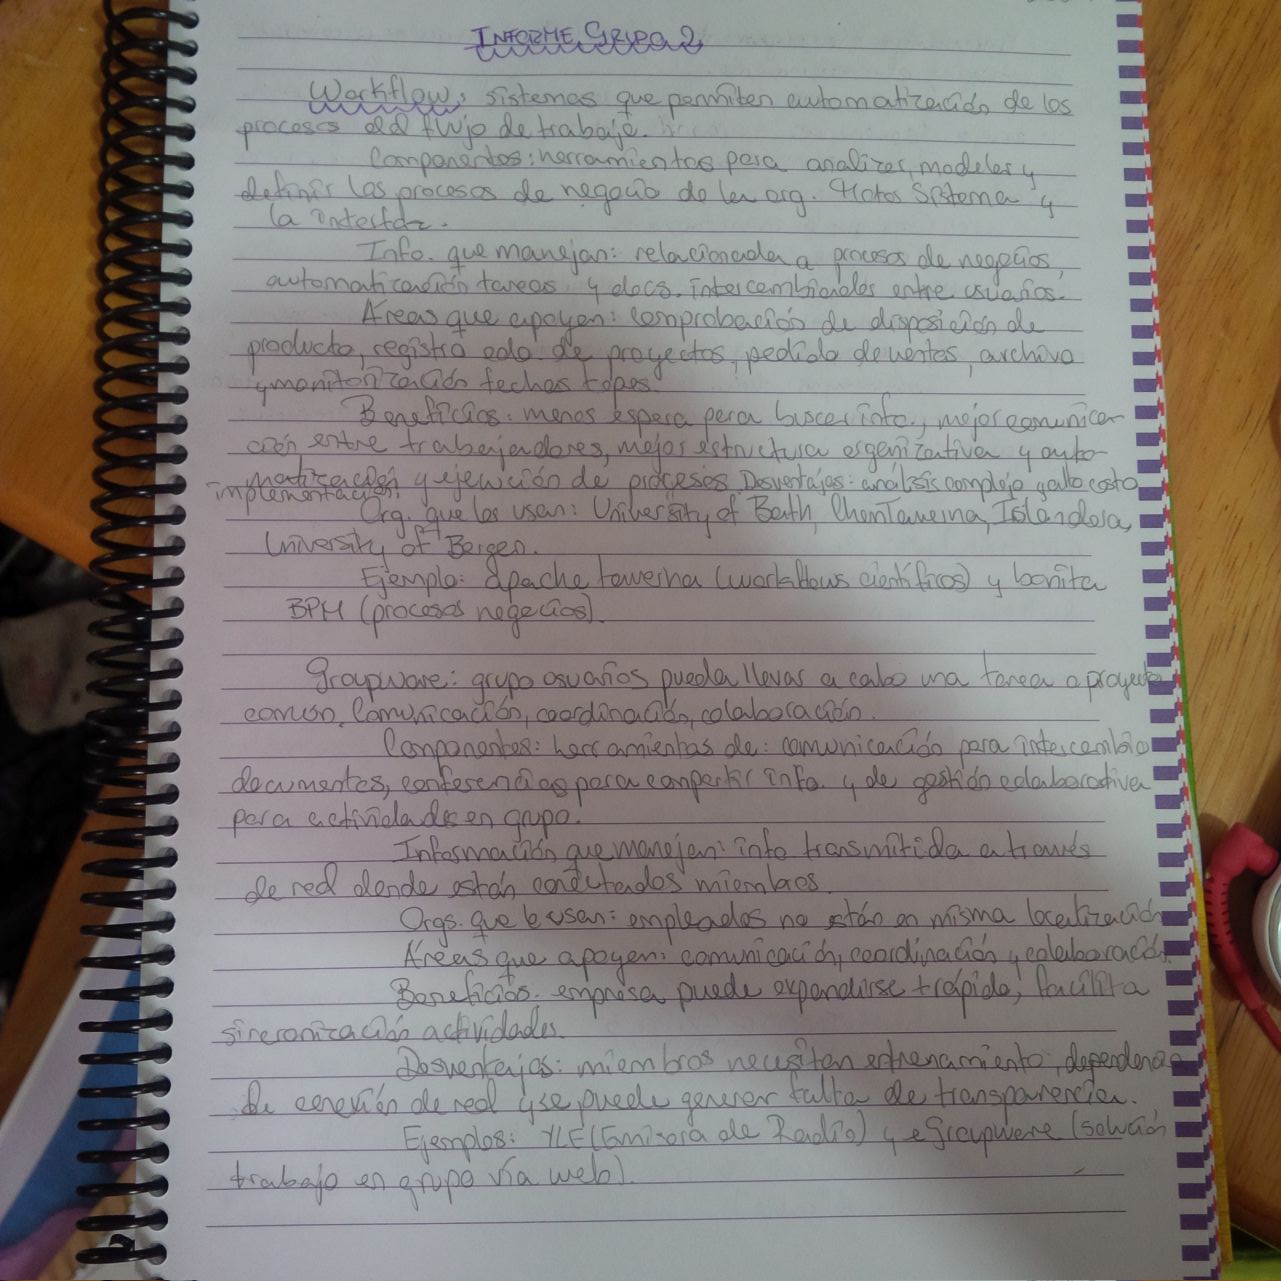 INFORME GRUPO 2
Workflow: sistemas que permiten automatización de los
procesos del flujo de trabajo.
Componentes: herramientas para analizar, modelar y
definir los procesos de negocio de la org. Motor Sistema y
la interfaz.
Info. que manejan: relacionada a procesos de negocios,
automatización tareas y docs. intercambiados entre usuarios.
Áreas que apoyan: comprobación de disposición de
producto, registro edo. de proyectos, pedido de ventas, archivo
y monitorización fechas topes.
Beneficios: menos espera para buscar info, mejor comunica
ción entre trabajadores, mejor estructura organizativa y auto
matización y ejecución de procesos Desventajas: análisis complejo y alto costo
implementación.
Org. que los usan: University of Bath, Islandesa,
University of Bergen.
Ejemplo: apache taverna (workflows científicos) y bonita
BPM (procesos negocios).
Groupware: grupo usuarios pueda llevar a cabo una tarea o proyecto
común. Comunicación, coordinación, colaboración.
Componentes: herramientas de: comunicación para intercambio
documentos, conferencias para compartir info. y de gestión colaborativa
para actividades en grupo.
Información que manejan: info transmitida a través
de red donde están conectados miembros.
Orgs. que lo usan: empleados no están en misma localización
Áreas que apoyan: comunicación, coordinación y colaboración.
Beneficios: empresa puede expandirse + rápido, facilita
sincronización actividades.
Desventajas: miembros necesitan entrenamiento, dependencia
de conexión de red y se puede generar falta de transparencia.
Ejemplos: YLE (Emisora de Radio) y eGroupware (solución
trabajo en grupo vía web).